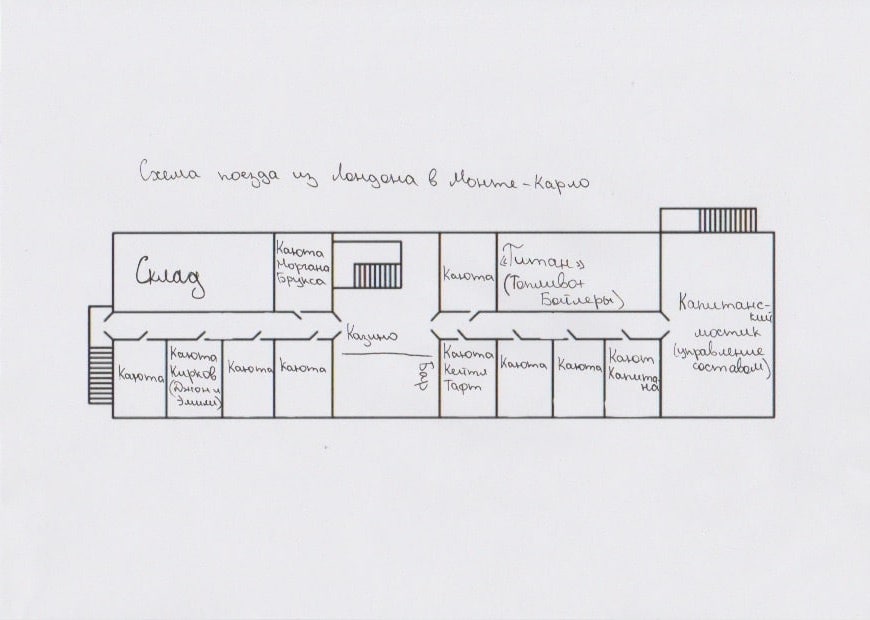 Схема поезда из Лондона в Монте-Карло
Склад
Каюта
Моргана
Брукса
Каюта
«Титан»
(Топливо+
Бойлеры)
Капитанс-
кий
мостик
(управление
составом)
Казино
Бар
Каюта
Каюта
Кирков
(Джон и
Эмили)
Каюта
Каюта
Каюта
Кейтл
Тарт
Каюта
Каюта
Кают
Капита-
на